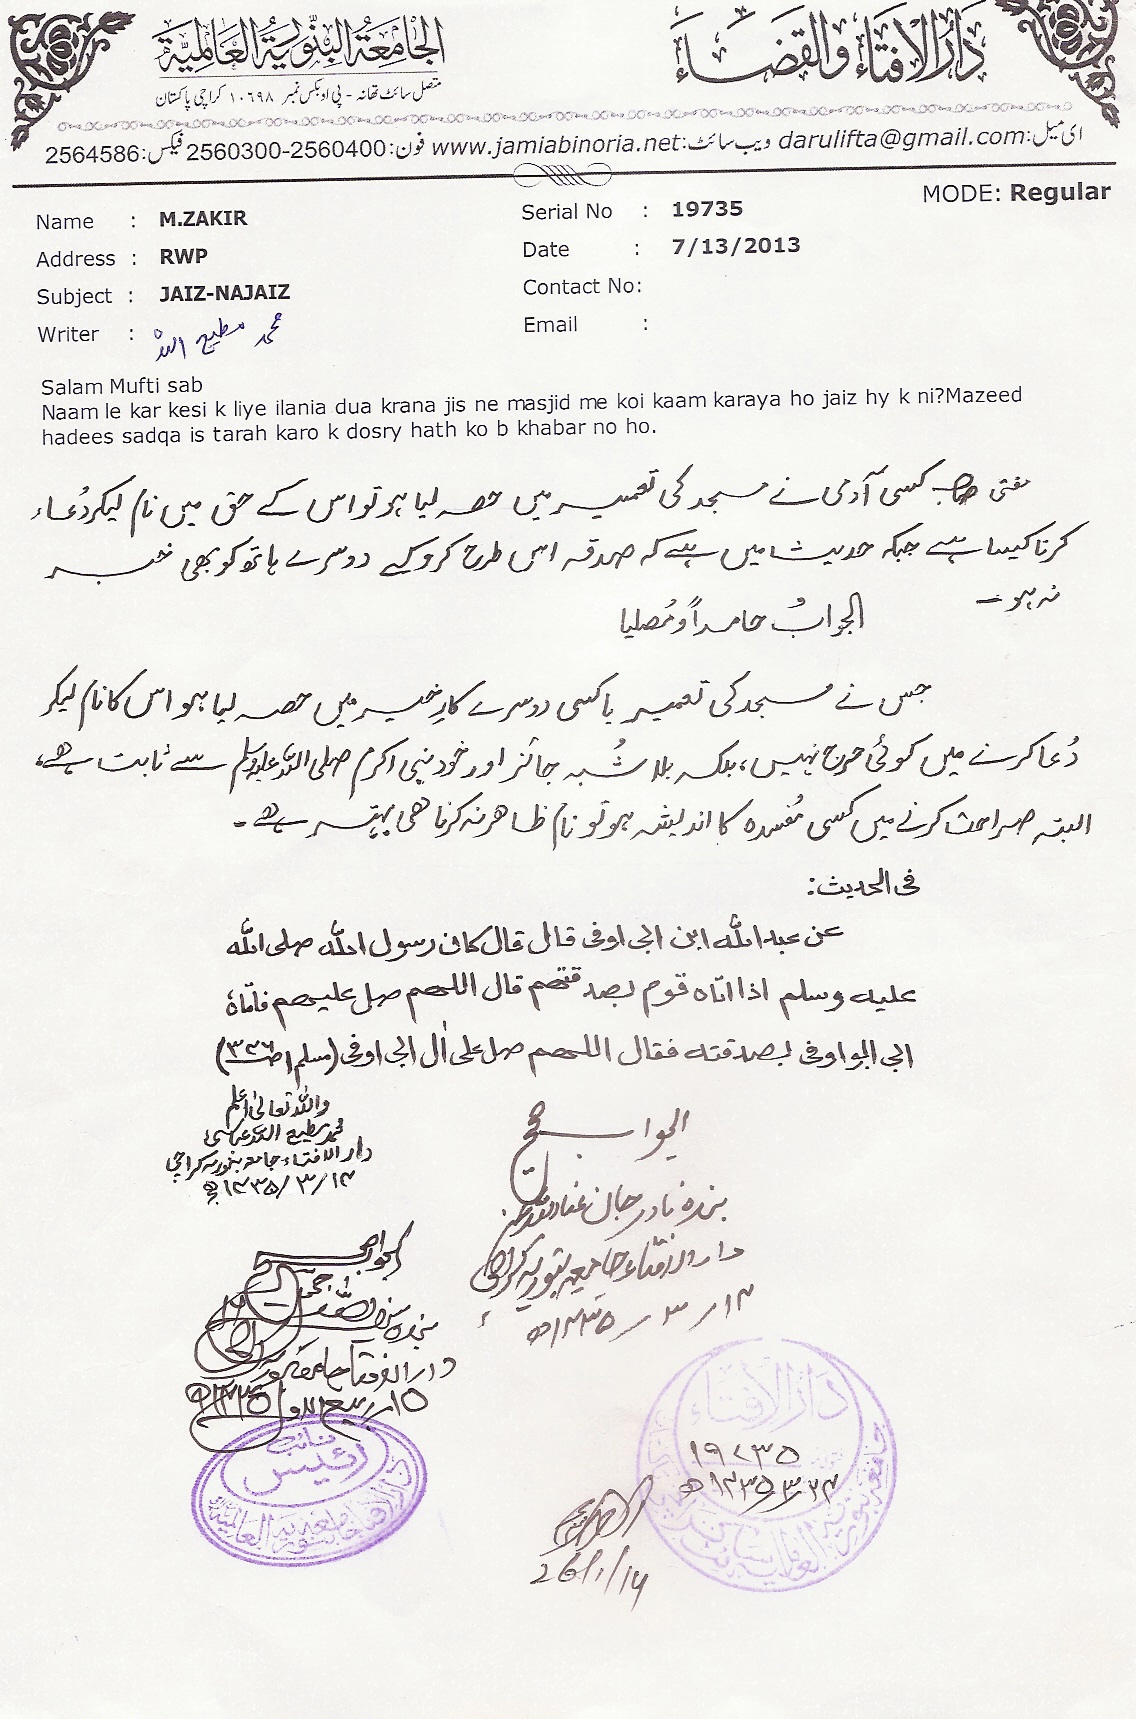 الجامعة البنورية العالمية
دار الافتاء والقضاء
متصل سائٹ تھانہ - پی او بکس نمبر ۱۰۶۹۸ کراچی پاکستان
ای میل: darulifta@gmail.com ویب سائٹ: www.jamiabinoria.net فون: 2560300-2560400 فیکس: 2564586
MODE: Regular
Name : M.ZAKIR
Serial No : 19735
Address : RWP
Date : 7/13/2013
Subject : JAIZ-NAJAIZ
Contact No:
Writer : محمد مطیع اللہ
Email :
Salam Mufti sab
Naam le kar kesi k liye ilania dua krana jis ne masjid me koi kaam karaya ho jaiz hy k ni?Mazeed
hadees sadqa is tarah karo k dosry hath ko b khabar no ho.
مفتی صاحب کسی آدمی نے مسجد کی تعمیر میں حصہ لیا ہو تو اس کے حق میں نام لیکر دُعاء
کرنا کیسا ہے جبکہ حدیث میں ہے کہ صدقہ اس طرح کرو کہ دوسرے ہاتھ کو بھی خبر
نہ ہو ۔
الجوابُ حامداً و مُصلیا
جس نے مسجد کی تعمیر یا کسی دوسرے کارِ خیر میں حصہ لیا ہو اس کا نام لیکر
دُعا کرنے میں کوئی حرج نہیں، بلکہ بلا شُبہ جائز اور خود نبی اکرم صلی اللہ علیہ وسلم سے ثابت ہے،
البتہ صراحت کرنے میں کسی مُفسدہ کا اندیشہ ہو تو نام ظاہر نہ کرنا ھی بہتر ہے ۔
فی الحدیث:
عن عبد اللہ ابن ابی اوفی قال قال کان رسول اللہ صلی اللہ
علیہ وسلم اذا اتاہ قوم بصدقتھم قال اللھم صل علیھم فاتاہ
ابی ابو اوفی بصدقتہ فقال اللھم صل علی اٰل ابی اوفی (مسلم ۱ ص ۳۴۶)
واللہ تعالیٰ اعلم
محمد مطیع اللہ عباسی
دار الافتاء جامعہ بنوریہ کراچی
۱۲/۳/۱۴۳۵ھ
الجواب صحیح
بندہ نادر جان غفر اللہ لہ
دار الافتاء جامعہ بنوریہ کراچی
۱۲/۳/۱۴۳۵ھ
الجواب صحیح
دار الافتاء جامعہ بنوریہ
۱۵ ربیع الاول ۱۴۳۵ھ
نائب
رئیس
دار الافتاء جامعہ بنوریہ العالمیہ
دار الافتاء
۱۹۷۳۵
۲۴/۳/۱۴۳۵ھ
26/1/14